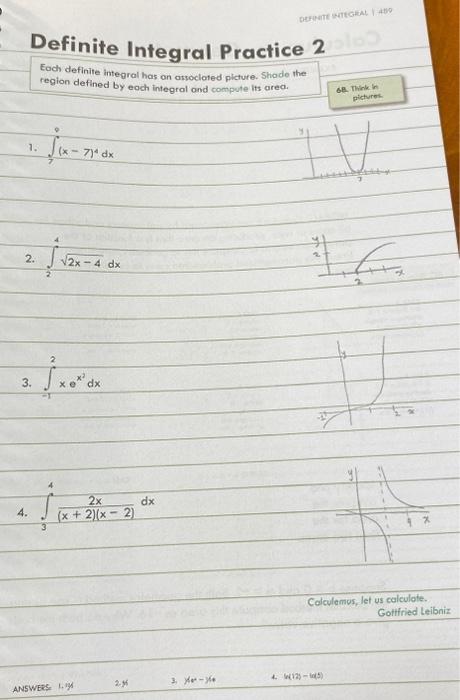 DEFINITE INTEGRAL | 489
Definite Integral Practice 2
Each definite integral has an associated picture. Shade the
region defined by each integral and compute its area.
6B. Think in
pictures.
1. ∫₇⁹ (x − 7)⁴ dx
y
7
2. ∫₂⁴ √2x − 4 dx
y
2
2
x
3. ∫₋₁² x eˣ² dx
y
-1
1
2 x
4. ∫₃⁴ 2x / (x + 2)(x − 2) dx
y
4 x
Calculemus, let us calculate.
Gottfried Leibniz
ANSWERS: 1. 2. 3. 4. ln(12) − ln(5)